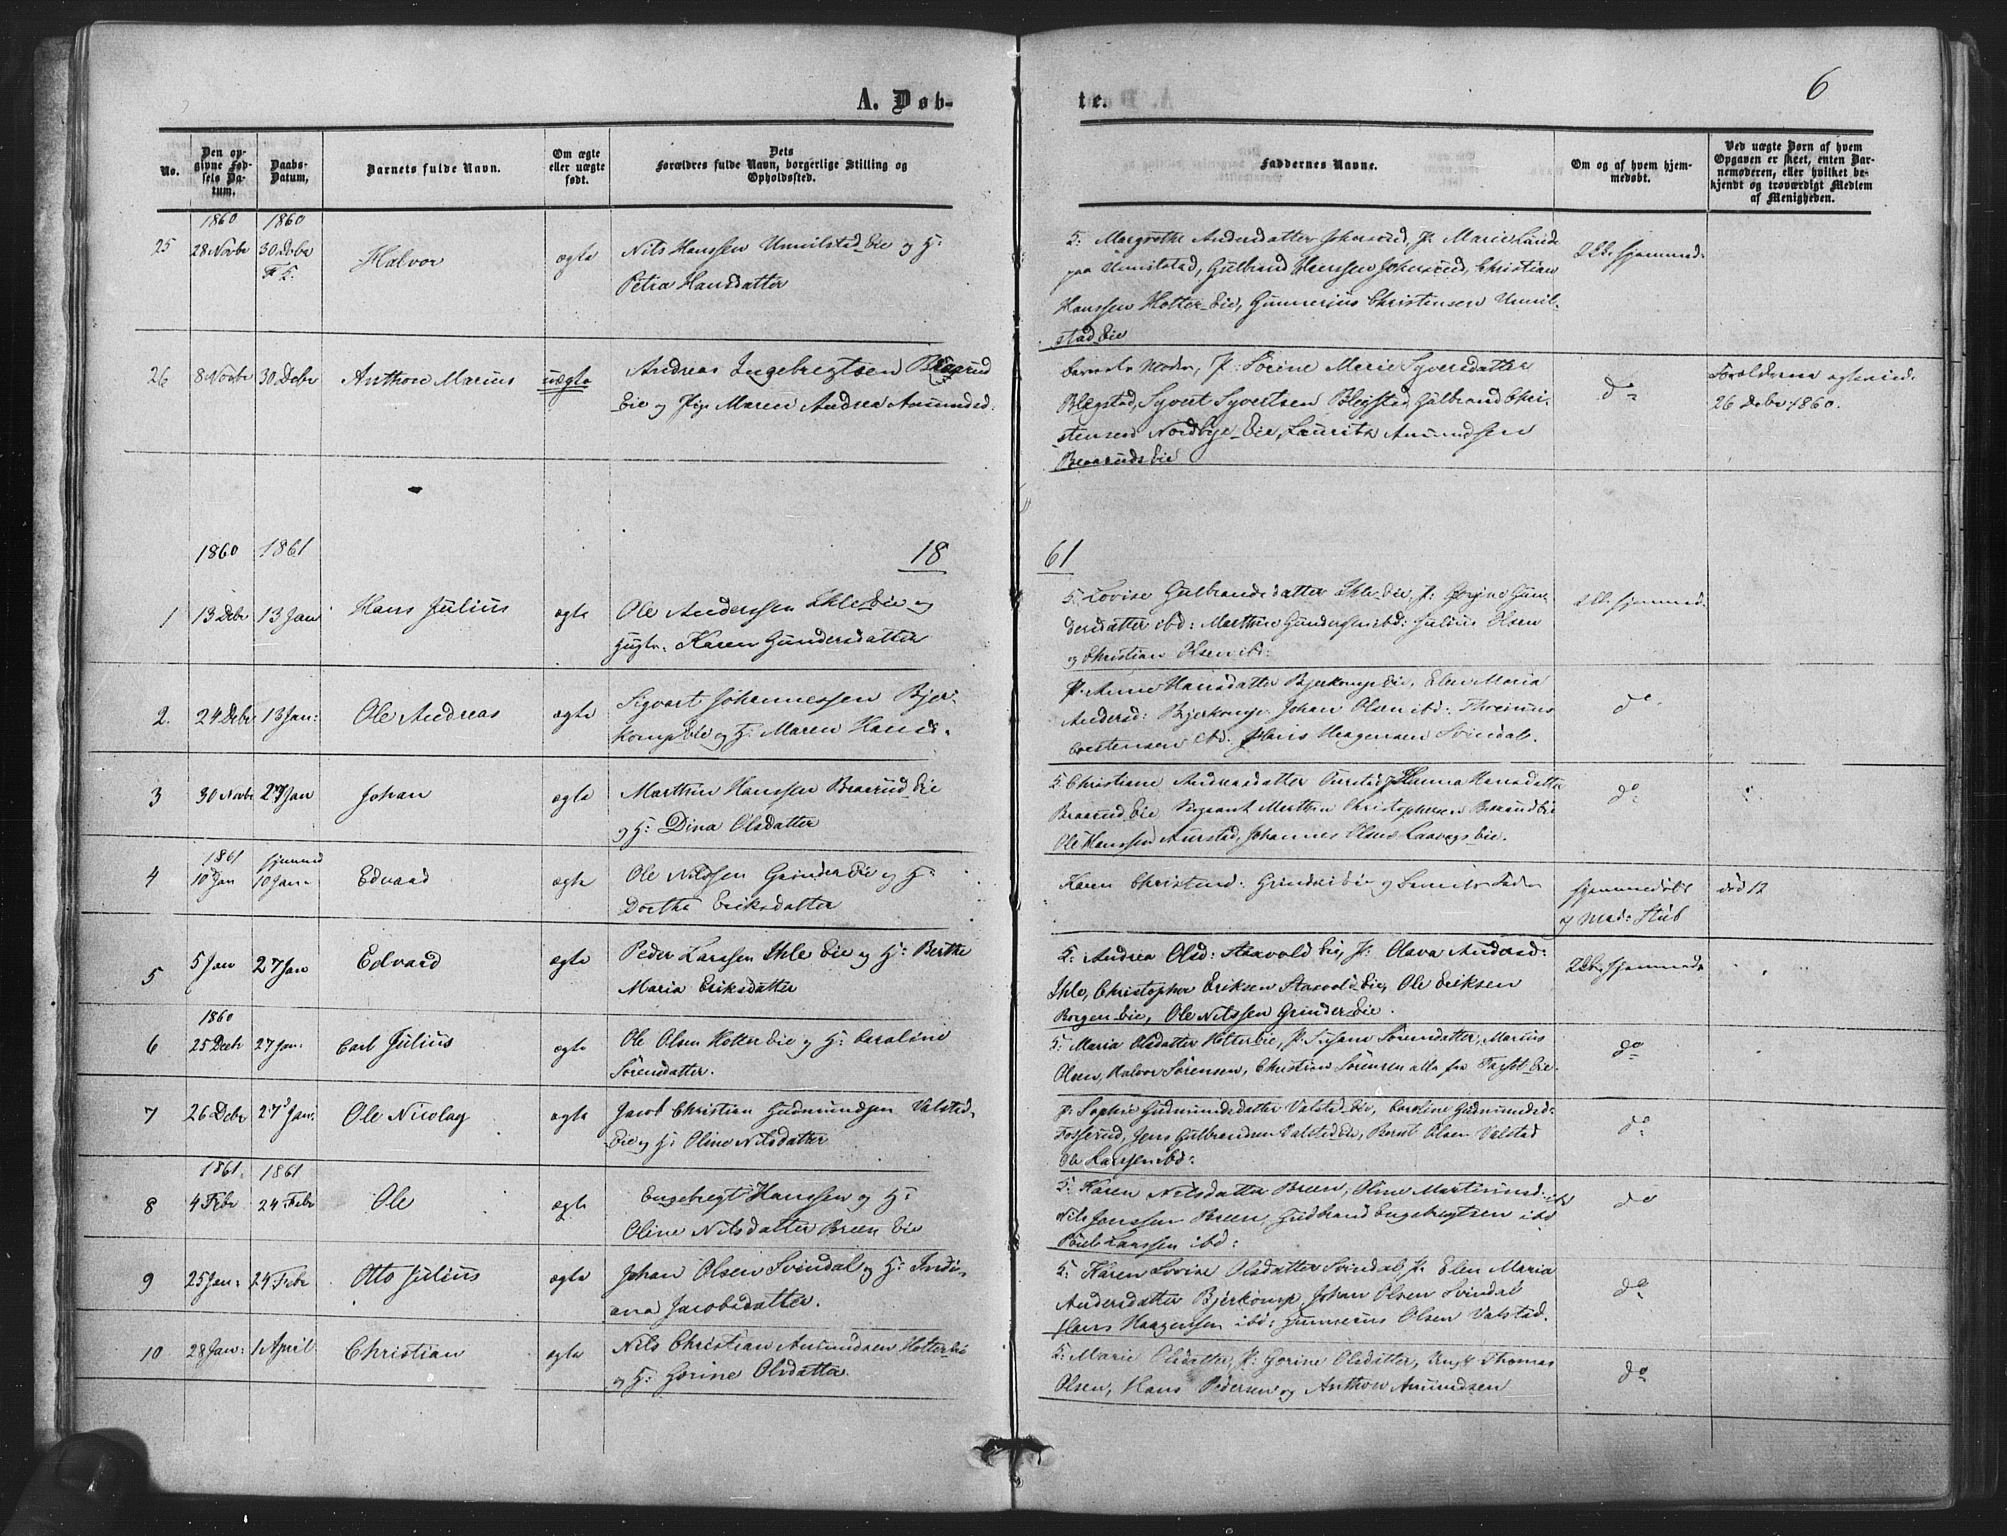 6
A. Døb-
te.
No.
Den op-
givne Fød-
sels Da-
tum.
Daabs-
Datum.
Barnets fulde Navn.
Om ægte
eller uægte
født.
Dets
Forældres fulde Navn, borgerlige Stilling og
Opholdssted.
Faddernes Navne.
Om og af hvem hjem-
medøbt.
Ved uægte Børn af hvem
Opgaven er skeet, enten Bar-
nemoderen, eller hvilket be-
kjendt og troværdigt Medlem
af Menigheden.
1860 1860
25 28 Novbr 30 Debr Halvor ægte Nils Hanssen Unnilstad Eie og H:
Petra Hansdatter
Margrethe Andersdatter Johnsrud, P: Marie Lunde
paa Unnilstad, Gulbrand Hanssen Johnsrud, Christian
Hanssen Holter Eie, Gunnerius Christensen Unnil-
stad Eie
hjemmed:
26 8 Novbr 30 Debr Anthon Marius uægte Andreas Ingebregtsen Braarud
Eie og Pige Maren Andrea Amundsd.
Barnets Moder, P: Sörine Marie Syversdatter
Blegstad, Syvert Syvertsen Blegstad, Gulbrand Chri-
stensen Nordbye Eie, Lauritz Amundsen
Braarud Eie
do
Forældrene
26 Debr 1860.
1860 1861 18 61
1 13 Debr 13 Jan Hans Julius ægte Ole Anderssen Ihle Eie og
Karen Gundersdatter
Lovise Gulbrandsdatter Ihle Eie, P: Gun-
dersdatter ibd: Marthin Gundersen ibd: Julius Olsen
og Christian Olsen ibd:
hjemmed:
2. 24 Debr 13 Jan: Ole Andreas ægte Sigvart Johannessen Bjer-
komp Eie og H: Maren Hansd.
P: Anne Hansdatter Bjerkomp Eie, Elen Maria
Andersd: Bjerkomp Johan Olsen ibd:
ibd. Hans Haagensen Svindal.
do
3 30 Novbr 27 Jan Johan ægte Marthin Hanssen Braarud Eie
og H: Dina Olsdatter
Christiane Andreasdatter Hanna Hansdatter
Braarud Eie Marthin Christophersen Braarud Eie
Ole Hanssen Aurstad, Johannes Olsen Eie.
do
1861 hjemmed
4 10 Jan 10 Jan Edvard ægte Ole Nilssen Grinder Eie og H:
Dorthe Eriksdatter
Karen Christensd: Grinder Eie og Barnets Fader
hjemmedøbt
død 12
5 5 Jan 27 Jan Edvard ægte Peder Larssen Ihle Eie og H: Berthe
Maria Eriksdatter
Andrea Olsd: Eie, P: Olava Andersd:
Ihle, Christopher Eriksen Eie, Ole Eriksen
Borgen Eie, Ole Nilssen Grinder Eie.
hjemmed:
1860
6 25 Debr 27 Jan: Carl Julius ægte Ole Olsen Holter Eie og H: Caroline
Sörensdatter.
Maria Olsdatter Holter Eie, P: Susane Sörensdatter, Marius
Olsen, Halvor Sörensen, Christian Sörensen alle fra Eie
do
7 26 Debr 27 Jan: Ole Nicolay ægte Jacob Christian Gudmundsen Valstad
Eie og H: Oline Nilsdatter
P: Sophie Gudmundsdatter Valstad Eie, Caroline Gudmundsd:
Fosserud, Jens Gulbrandsen Valstad Eie, Bernt Olsen Valstad
Ole Larssen ibd:
do
1861. 1861
8 4 Febr 24 Febr Ole ægte Engebregt Hanssen og H:
Oline Nilsdatter Breen Eie
Karen Nilsdatter Breen, Oline Martinusd: ibd
Nils Jonssen Breen, Gudbrand Engebregtsen ibd
Larssen ibd:
do
9 25 Jan: 24 Febr Otto Julius ægte Johan Olsen Svindal og H: Indi-
ana Jacobsdatter.
Karen Lovise Olsdatter Svindal, P: Elen Maria
Andersdatter Bjerkomp, Johan Olsen Svindal
Hans Haagensen ibd: Gunnerius Olsen Valstad.
do
10 28 Jan: 1 April Christian ægte Nils Christian Amundsen Holter Eie
og H: Gorine Olsdatter.
Marie Olsdatter, P: Gorine Olsdatter, Ungk Thomas
Olsen, Hans Pedersen og Anthon Amundsen
do